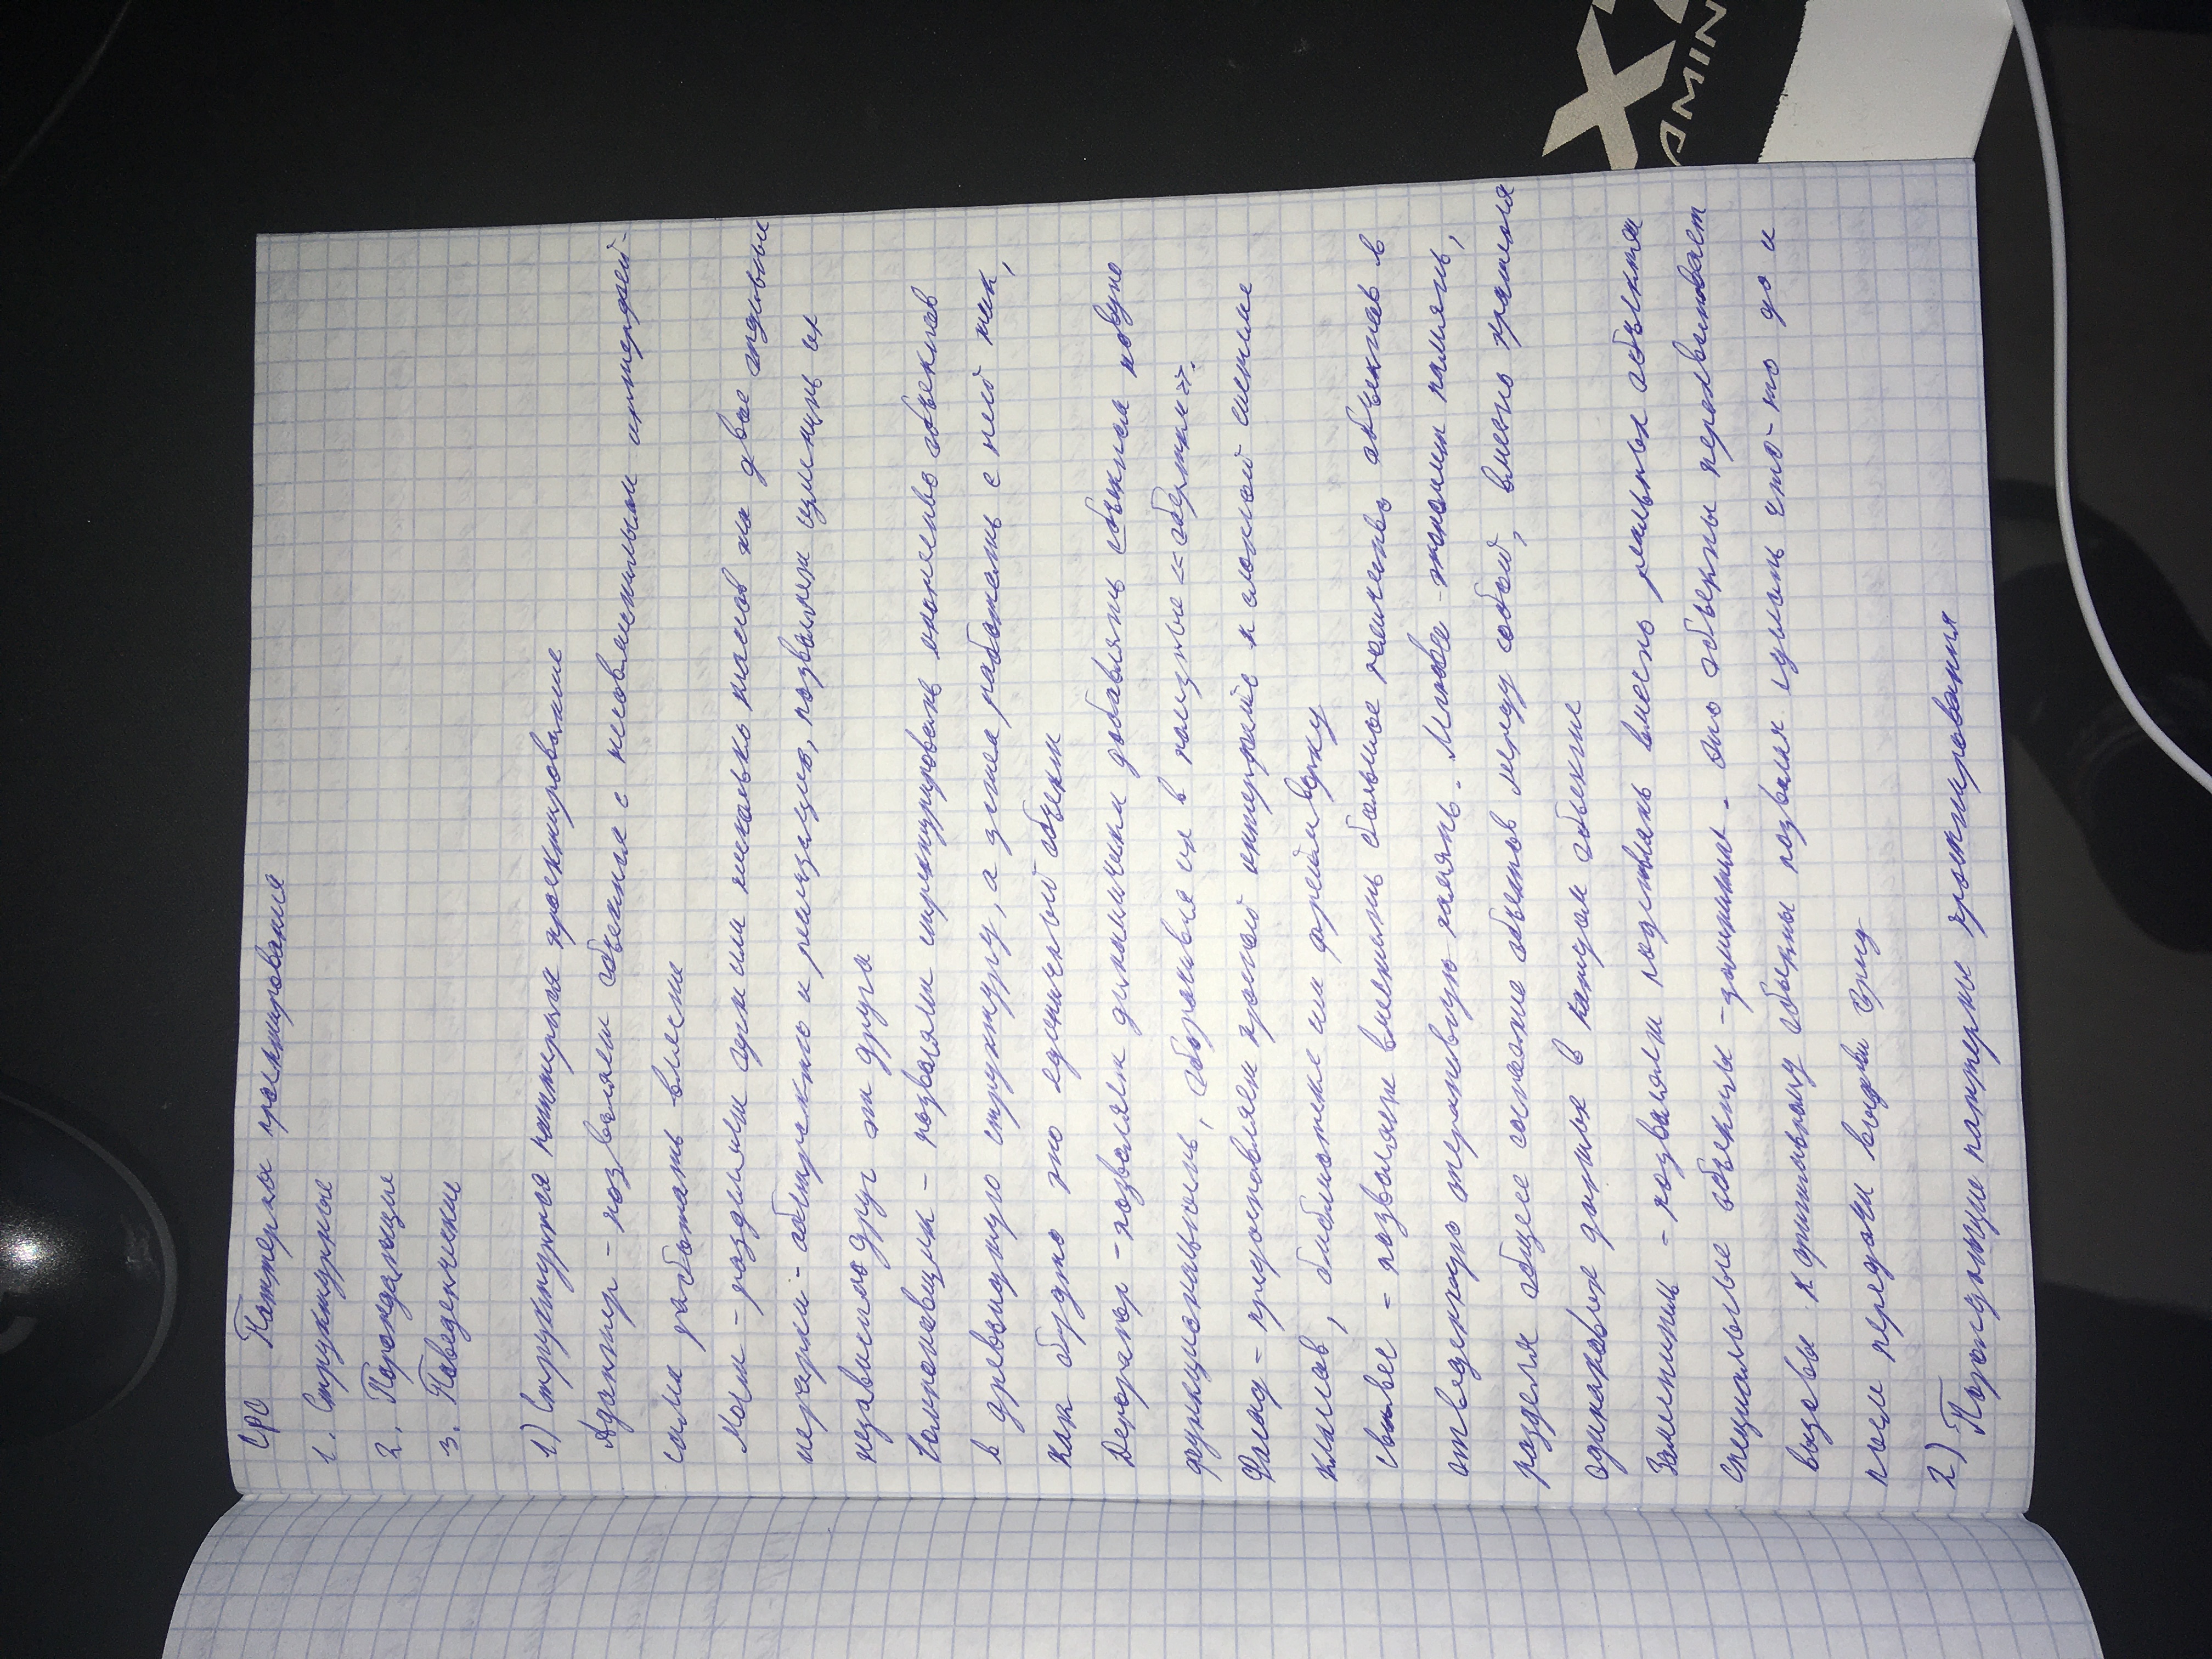 СРС Паттерны проектирования
1. Структурные
2. Порождающие
3. Поведенческие
1) Структурныя паттерныя проектирование
Адаптер – позволяет объектам с несовместимыми интерфей-
сами работать вместе
Мост – разделяет один или несколько классов на двое отдельные
иерархи – абстракцию и реализацию, позволяет изменять их
независимо друг от друга
Компоновщик – позволяет структурировать множество объектов
в древовидную структуру, а затем работать с ней так,
как будто это единичный объект
Декоратор – позволяет динамически добавлять объектам новую
функциональность, оборачивая их в полезные «обертки».
Фасад – предоставляет простой интерфейс к сложной системе
классов, библиотеке или фреймворку
– позволяет вместить большое количество объектов в
отведенную оперативную память. Легковес экономит память,
разделя общее состояние объектов между собой, вместо хранения
одинаковых данных в каждом объекте
Заместитель – позволяет подставлять вместо реальных объектам
специальные объекты – заменители. Это объекты перехватывает
вызовы к оригинальному объекты позволяя сделать что-то до и
после передачи
2) Порождающие паттерные проектирования
XZ
AMIN